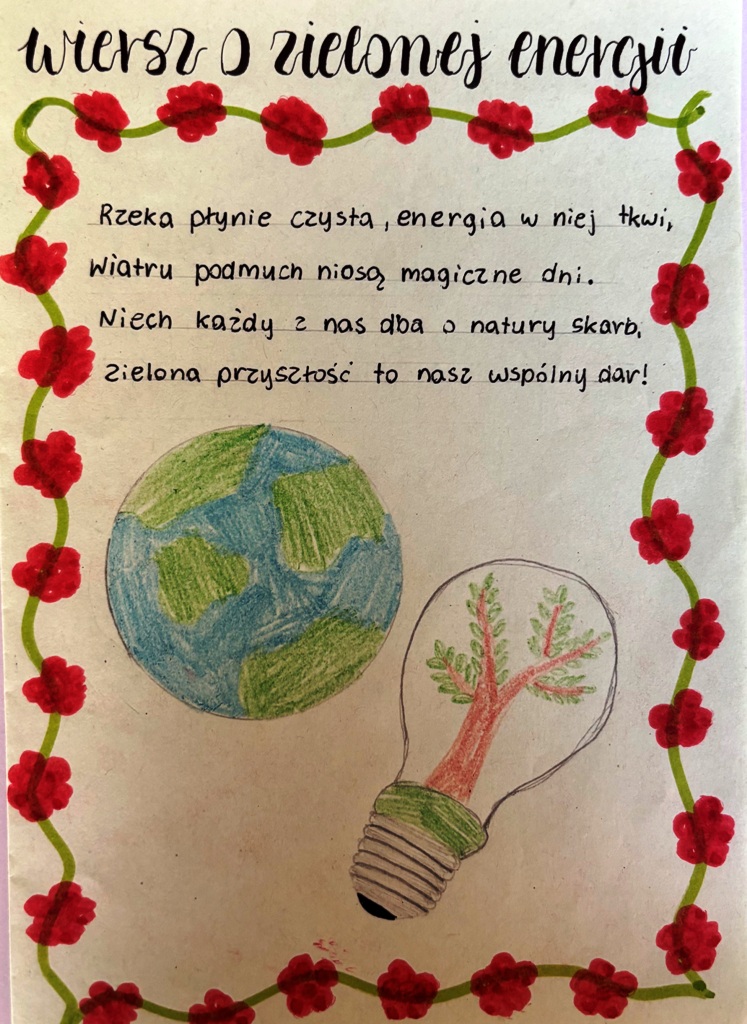 wiersz o zielonej energii
Rzeka płynie czysta, energia w niej tkwi,
Wiatru podmuch niosą magiczne dni.
Niech każdy z nas dba o natury skarb,
zielona przyszłość to nasz wspólny dar!